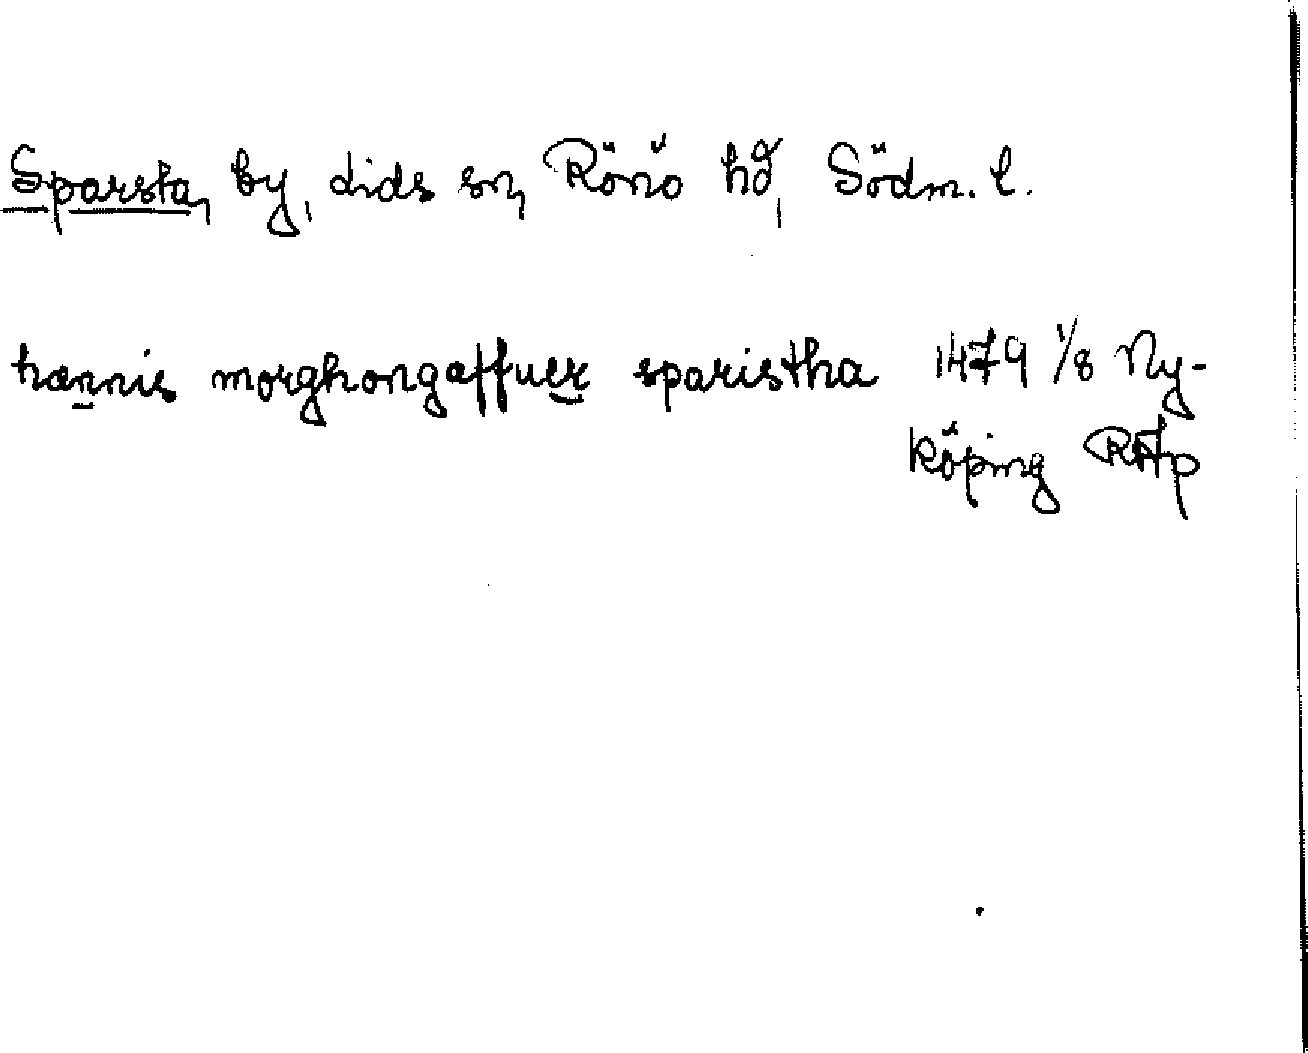 Sparsta, by, Lids sn, Rönö hd, Södm. l.
hænnis morghongaffuer sparistha 1479 1/8 Ny-
köping RAp